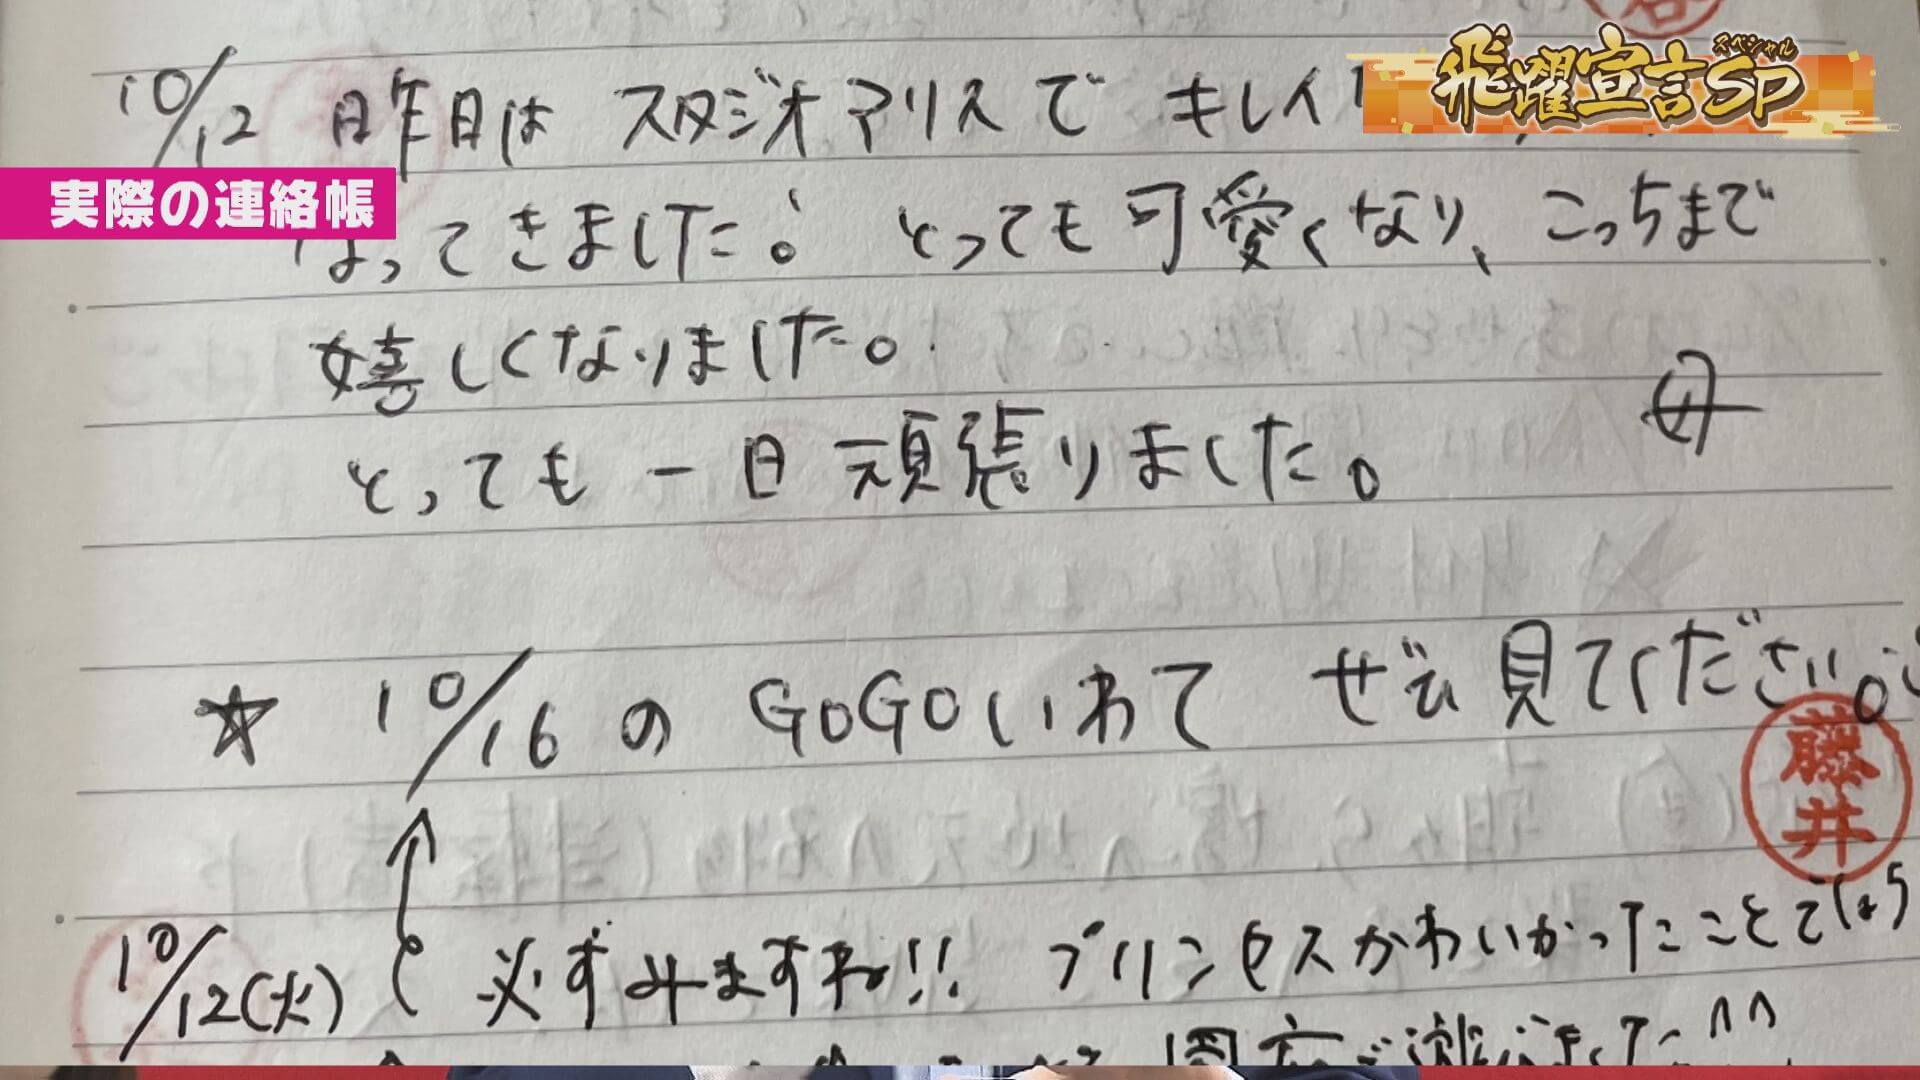 飛躍宣言SP
スペシャル
実際の連絡帳
10/12 昨日は スタジオアリスで キレイ
なってきました! とっても可愛くなり、こっちまで
嬉しくなりました。
母
とっても一日頑張りました。
☆ 10/16 の GOGOいわて ぜひ見てください。
藤井
10/12(火) 必ずみますね!! プリンセスかわいかったことでしょう
園庭で遊びました^^